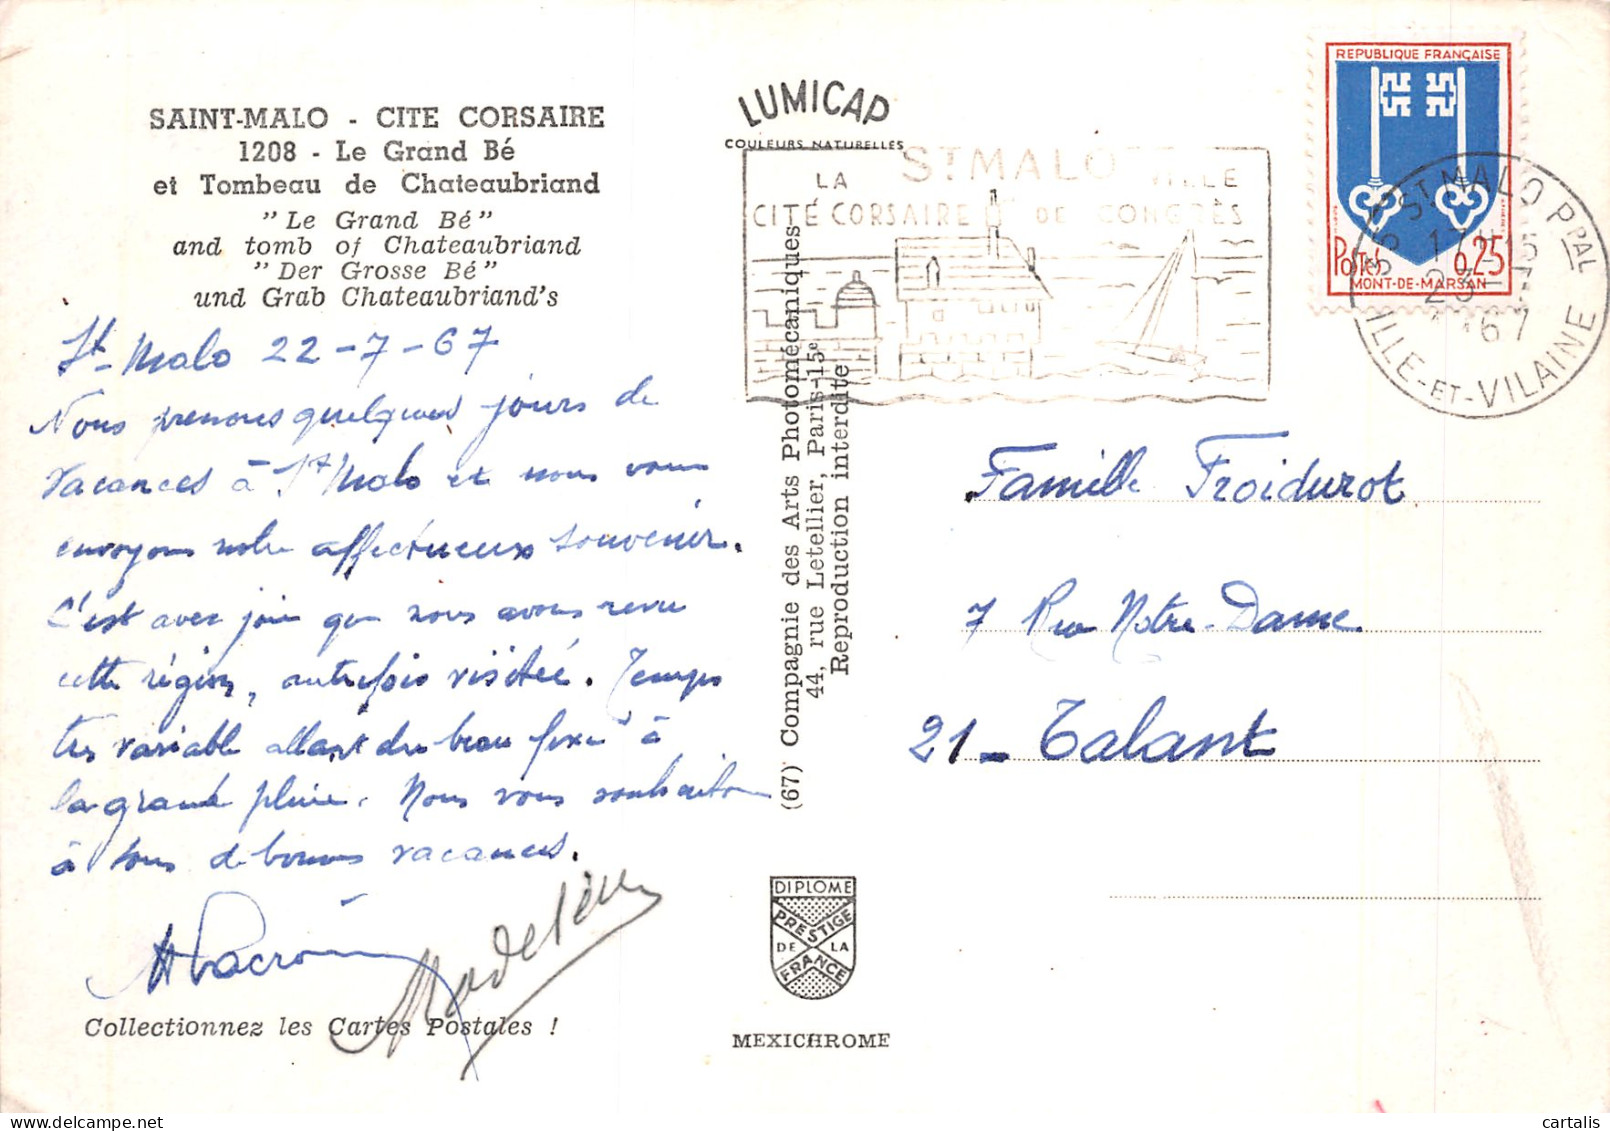 SAINT-MALO - CITE CORSAIRE
1208 - Le Grand Bé
et Tombeau de Chateaubriand
"Le Grand Bé"
and tomb of Chateaubriand
"Der Grosse Bé"
und Grab Chateaubriand's
St-Malo 22-7-67
Nous prenons quelques jours de
vacances à St Malo et nous vous
envoyons notre affectueux souvenir.
C'est avec joie que nous avons revu
cette région, autrefois visitée. Temps
très variable allant du "beau fixe" à
la grande pluie. Nous vous souhaitons
à tous de bonnes vacances.
Madeleine
Collectionnez les Cartes Postales !
LUMICAP
COULEURS NATURELLES
ST MALO
LA VILLE
CITÉ CORSAIRE DE CONGRÈS
(67) Compagnie des Arts Photomécaniques
44, rue Letellier, Paris-15e
Reproduction interdite
DIPLOME
PRESTIGE
DE LA
FRANCE
MEXICHROME
REPUBLIQUE FRANÇAISE
POSTES 0,25
MONT-DE-MARSAN
35 ST MALO PPAL
17H15
23-7
1967
ILLE-ET-VILAINE
Famille Froidurot
7 Rue Notre-Dame
21- Talant
cartalis